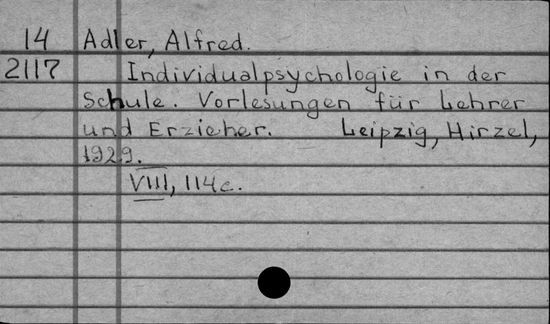 14 Adler, Alfred.
2117 Individualpsychologie in der
Schule. Vorlesungen für Lehrer
und Erzieher. Leipzig, Hirzel,
1929.
VIII, 114c.